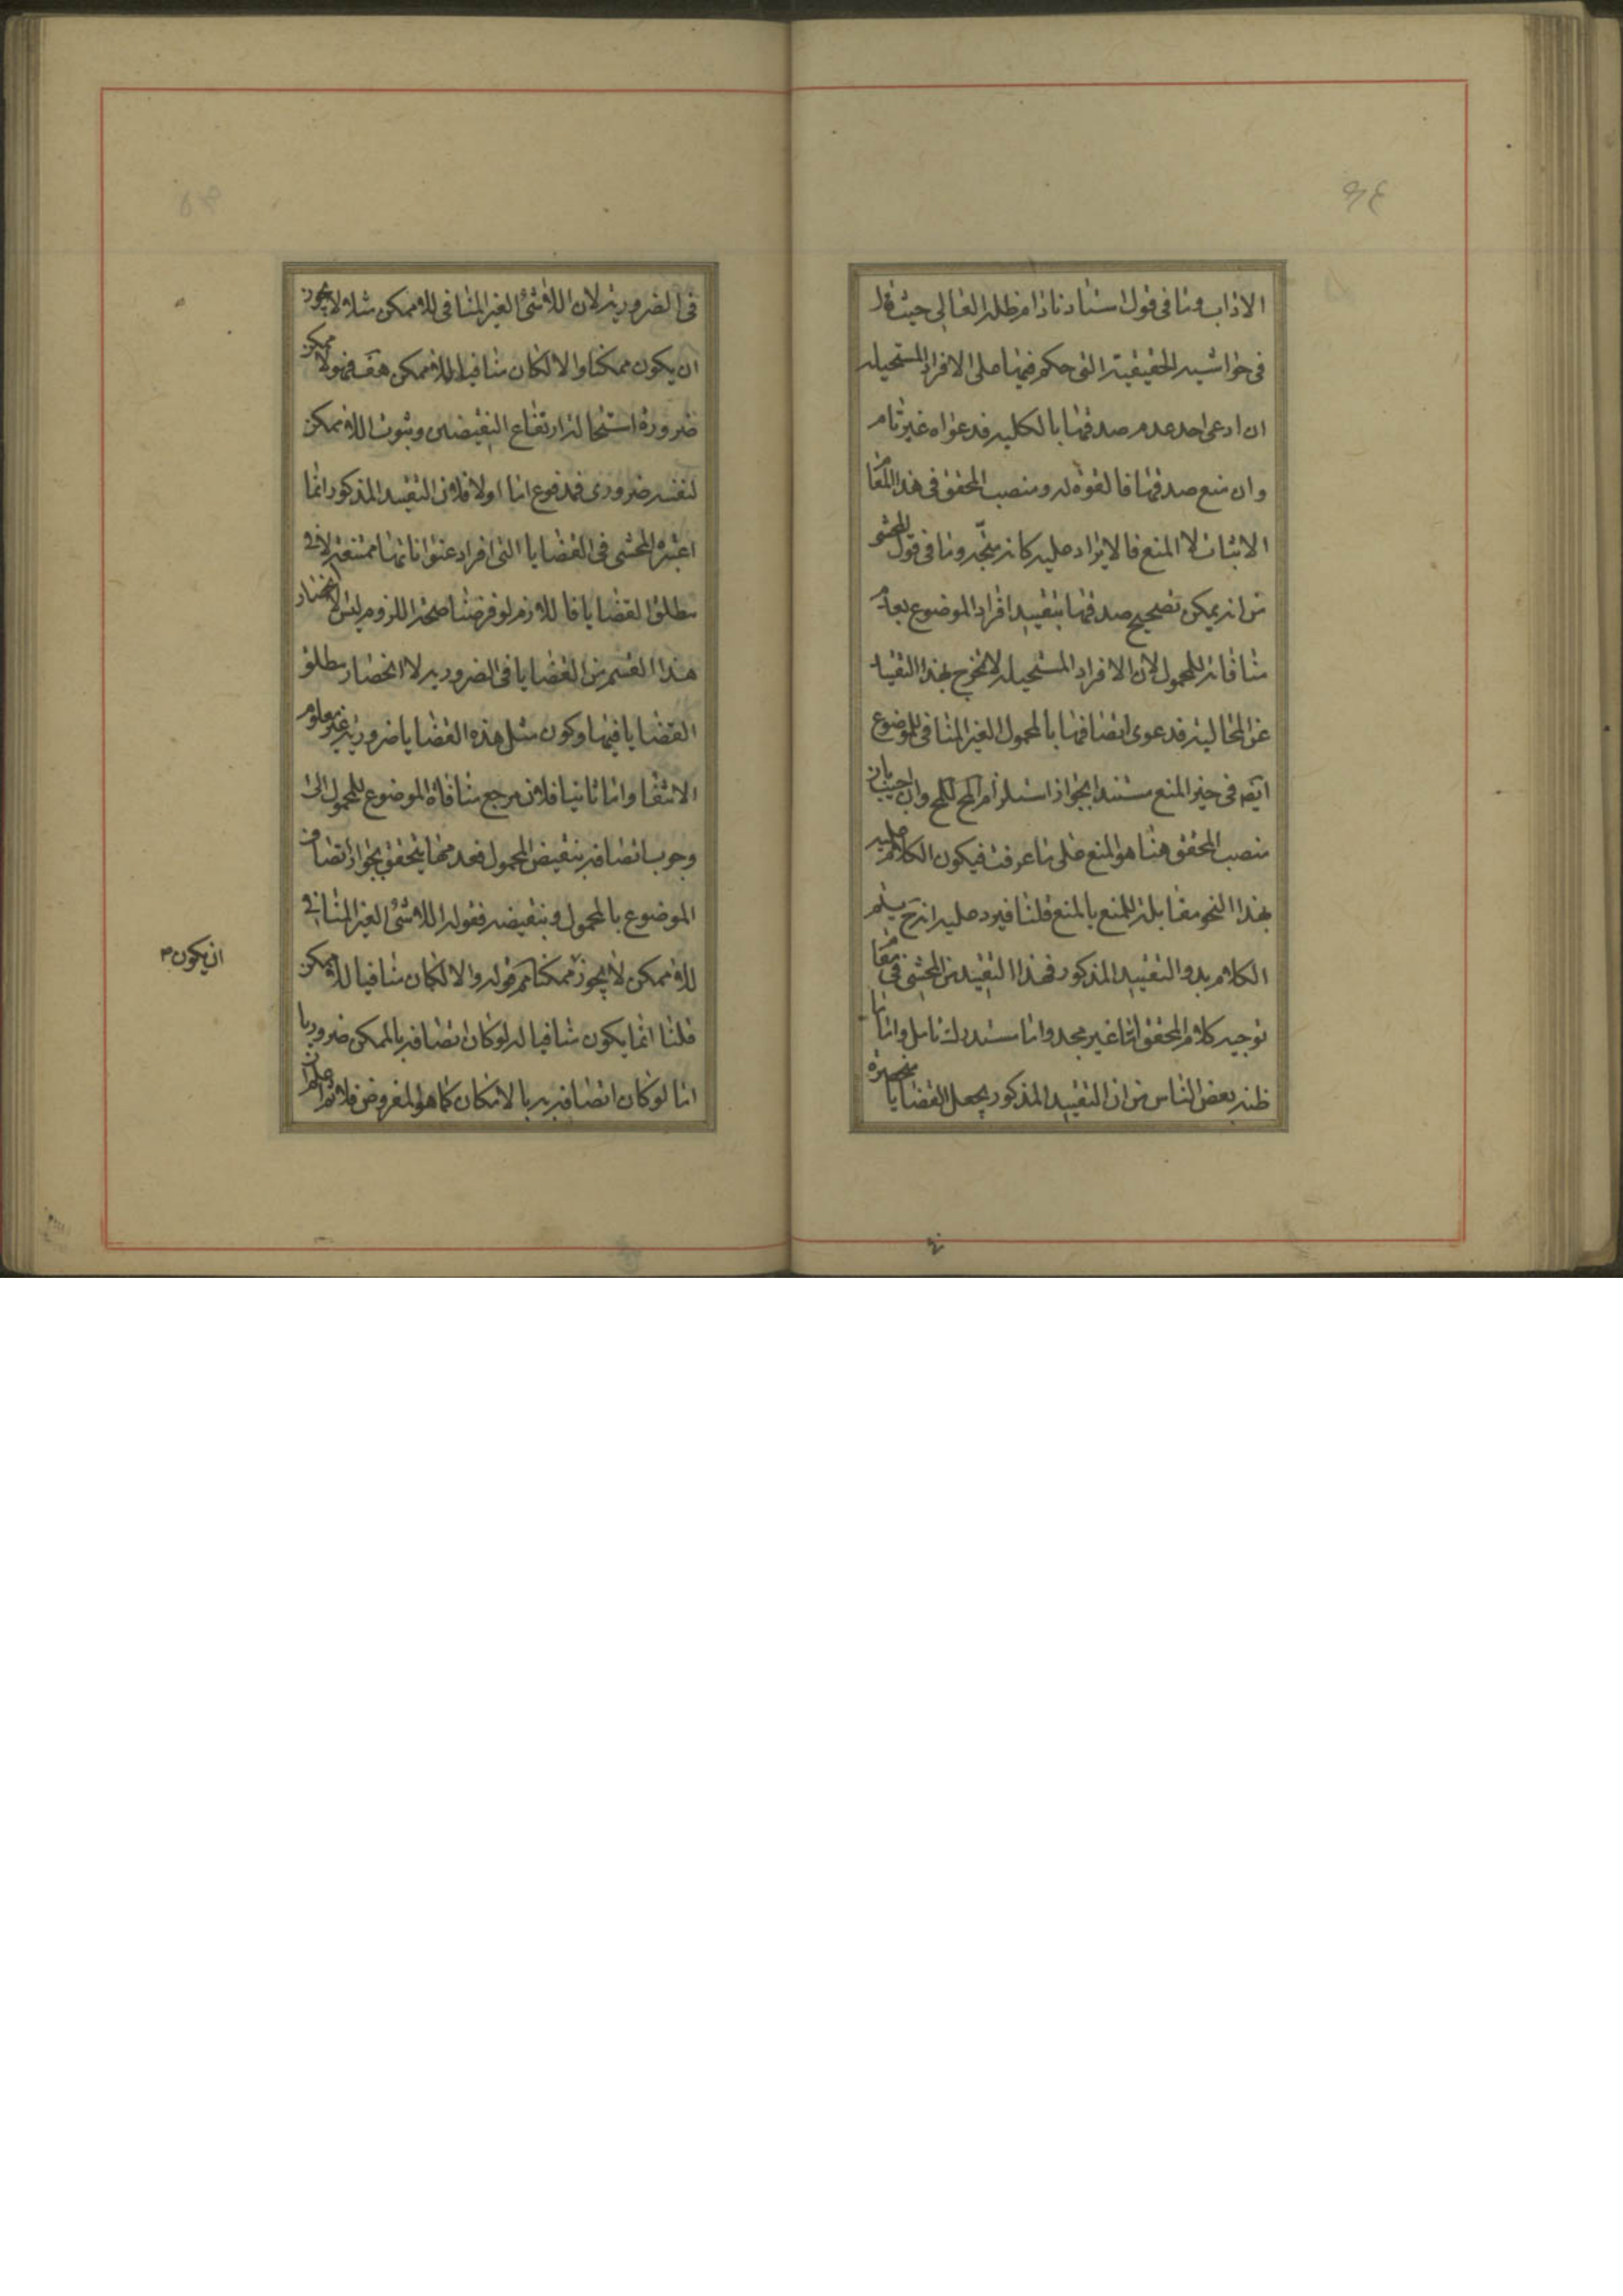 الاداب وما في قول استادنا دام ظله العالي حيث قال
في حواشيه الحقيقية التي حكم فيها على الافراد المستحيلة
ان ادعى احد عدم صدقها بالكلية فدعواه غير تام
وان منع صدقها فالقوة له ومنصب المحقق في هذا المقام
الاثبات لا المنع فالايراد عليه كانه متجه وما في قول المحشى
من انه يمكن تصحيح صدقها بتقييد افراد الموضوع بعدم
منافاته للمحمول لان الافراد المستحيلة لا تخرج بهذا التقييد
عن المحالية فدعوى اتصافها بالمحمول الغير المنافي للموضوع
ايضه في حيز المنع مستندا بجواز استلزام المح للمح وان اجيب بان
منصب المحقق هنا هو المنع على ما عرفت فيكون الكلام عليه
بهذا النحو مقابلة للمنع بالمنع قلنا فيرد عليه انه ح يتم
الكلام بدو التقييد المذكور فهذا التقييد من المحشى في مقام
توجيه كلام المحقق اما غير مجد واما مستدرك تامل واما ما
ظنه بعض الناس من ان التقييد المذكور يجعل القضايا منحصرة
في الضرورية لان اللاشئ الغير المنافي للاممكن مثلا لا يجوز
ان يكون ممكنا والا لكان منافيا للاممكن هف فهو لا ممكن
ضرورة استحالة ارتفاع النقيضين وثبوت اللاممكن
لنفسه ضروري فمدفوع اما اولا فلان التقييد المذكور انما
اعتبره المحشى في القضايا التي افراد عنواناتها ممتنعة لا في
مطلق القضايا فاللازم لو فرضنا صحة اللزوم ليس الا انحصار
هذا القسم من القضايا في الضرورية لا انحصار مطلق
القضايا فيها وكون مثل هذه القضايا ضرورية غير معلوم
الانتفا واما ثانيا فلان مرجع منافاة الموضوع للمحمول الى
وجوب اتصافه بنقيض المحمول فعدمها يتحقق بجواز اتصاف
الموضوع بالمحمول وبنقيضه فقوله اللاشئ الغير المنافي
للاممكن لا يجوز ممكنا مم قوله والا لكان منافيا للاممكن
ان يكون
قلنا انما يكون منافيا له لو كان اتصافه بالممكن ضروريا
اما لو كان اتصافه به بالامكان كما هو المفروض فلا ثم اعلم ان